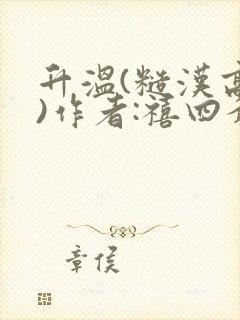 升温(糙漢高
)作者:禧四
章侯